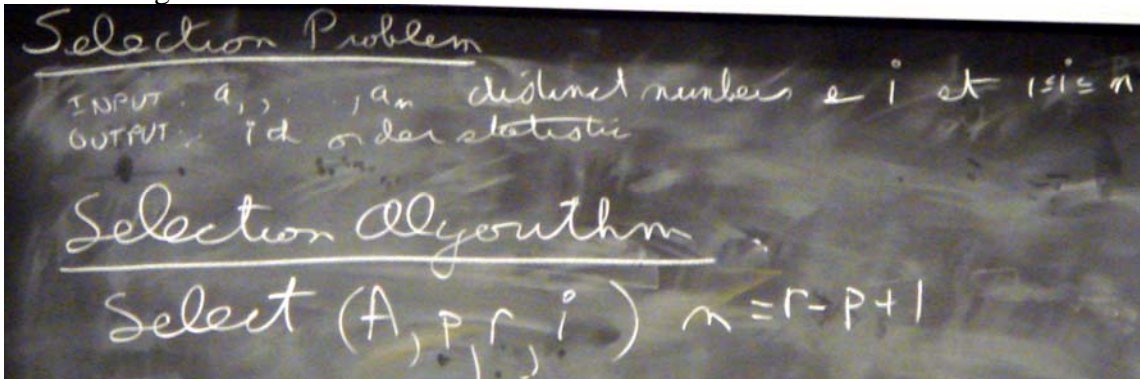 Selection Problem
INPUT: a₁, ..., aₙ distinct numbers & i st 1≤i≤n
OUTPUT: ith order statistic
Selection Algorithm
Select (A, p, r, i) n = r - p + 1